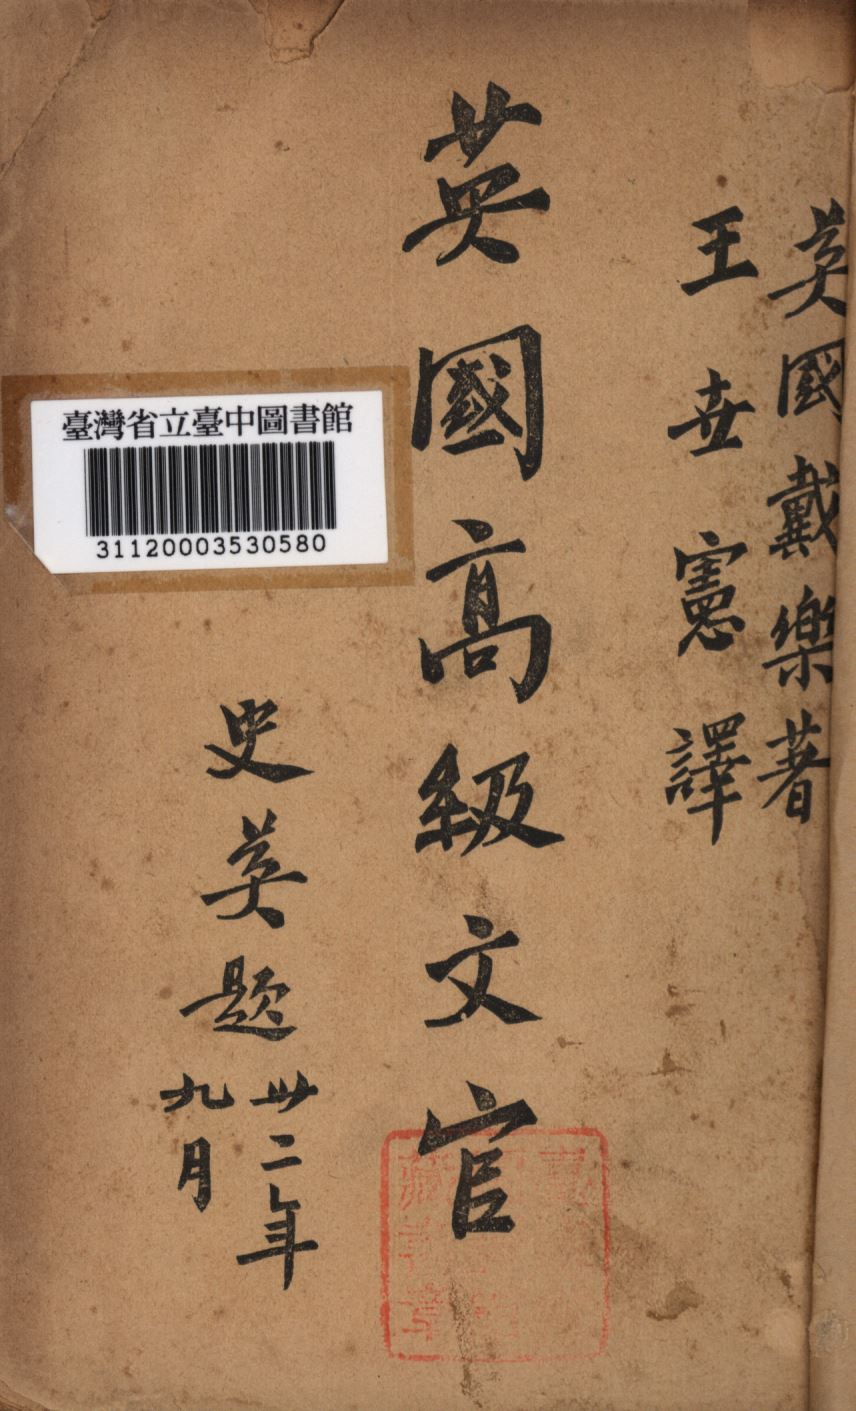 英國戴樂著
王世憲譯
英國高級文官
史英題
卅二年
九月
臺灣省立臺中圖書館
31120003530580